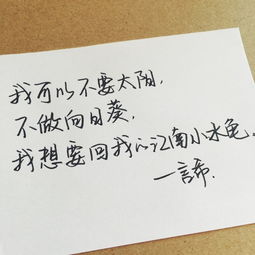 我可以不要太阳,
不做向日葵,
我想要回我的江南小水龟。
一言帘.